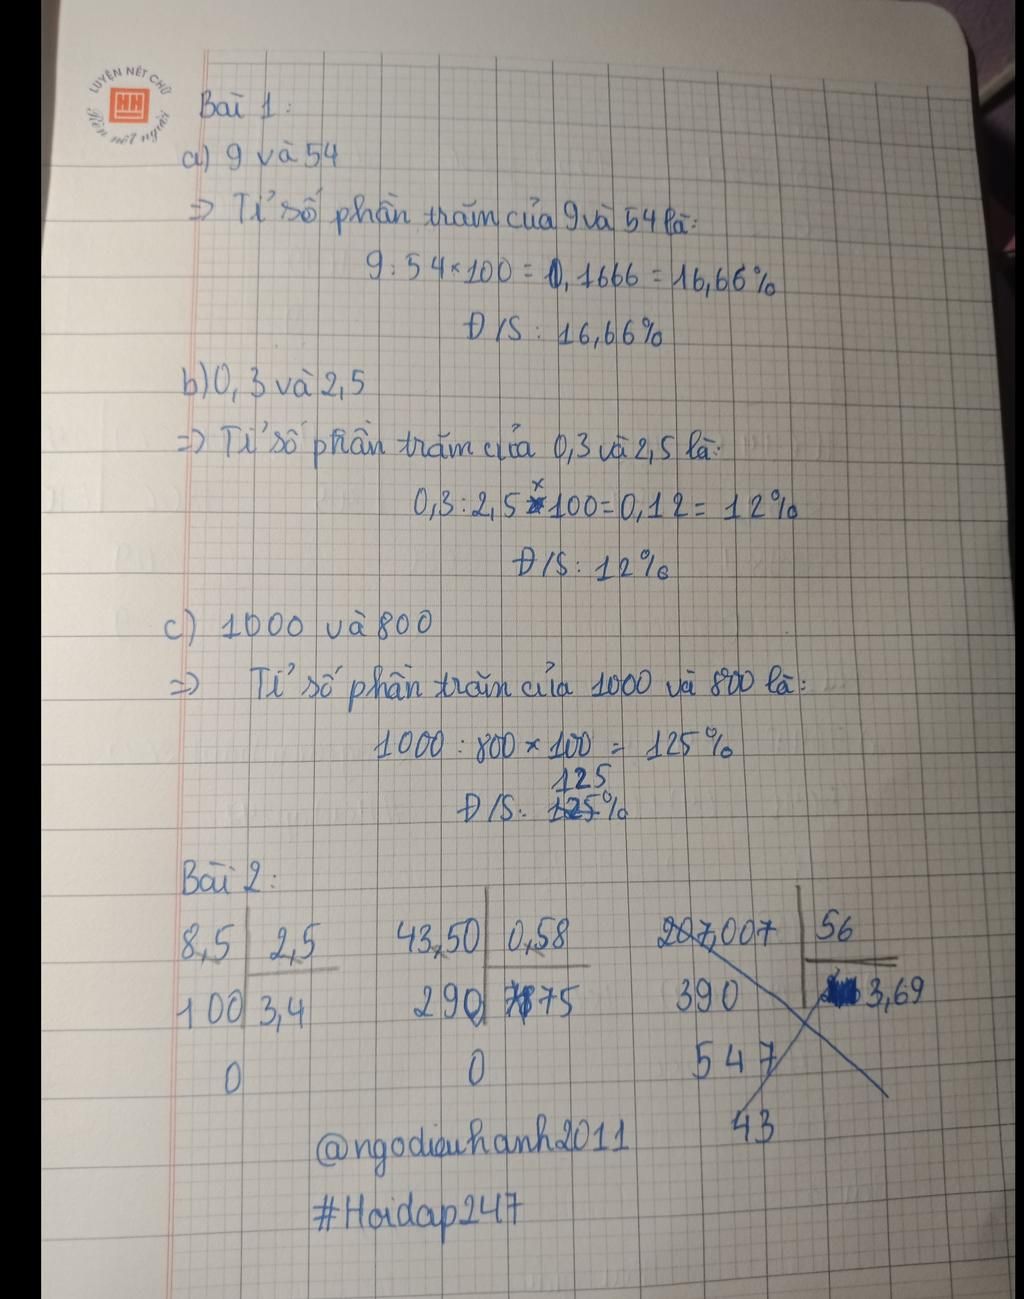 LUYỆN NÉT CHỮ
HH
Rèn nết người
Bài 1:
a) 9 và 54
=> Tỉ số phần trăm của 9 và 54 là:
9 : 54 × 100 = 0,1666 = 16,66%
Đ/S : 16,66%
b) 0,3 và 2,5
=> Tỉ số phần trăm của 0,3 và 2,5 là:
0,3 : 2,5 × 100 = 0,12 = 12%
Đ/S: 12%
c) 1000 và 800
=> Tỉ số phần trăm của 1000 và 800 là:
1000 : 800 × 100 = 125%
125
Đ/S: 125%
Bài 2:
8,5 2,5 43,50 0,58 207,007 56
100 3,4 290 75 390 3,69
0 0 547
43
@ngodieuhanh2011
#Hoidap247